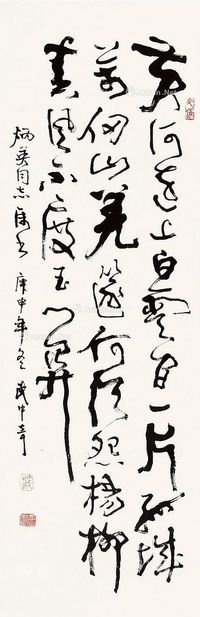 黄河远上白云间一片孤城
万仞山羌笛何须怨杨柳
春风不度玉门关
炳英同志属书 庚申年冬 武中奇